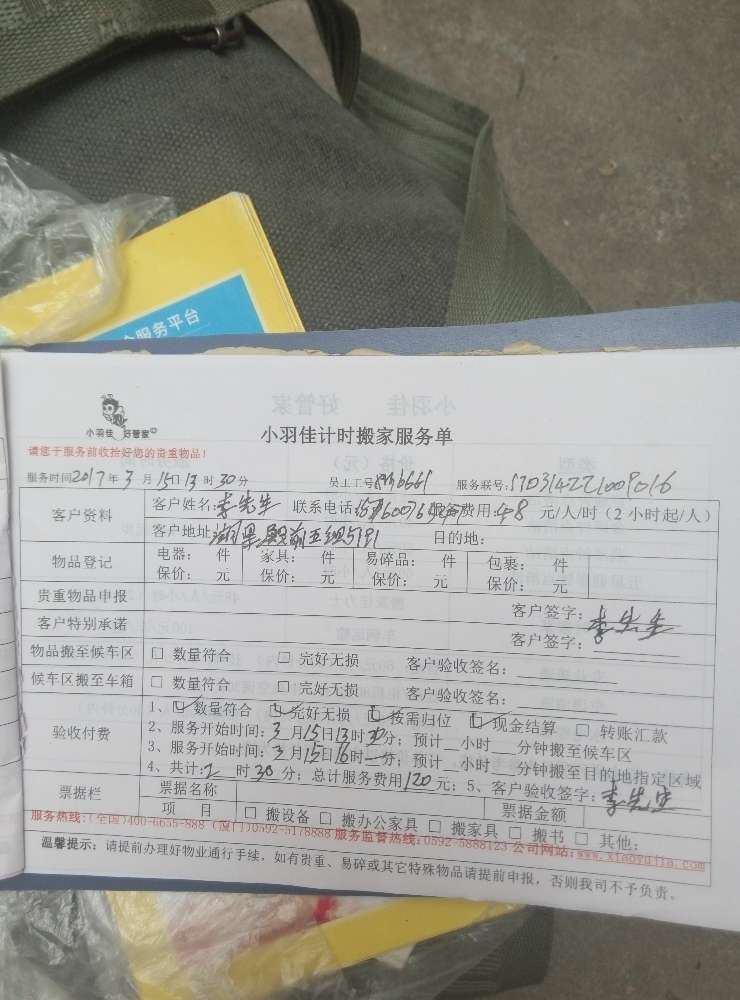 服务平台
小羽佳 好管家
小羽佳 好管家
小羽佳计时搬家服务单
请您于服务前收拾好您的贵重物品!
服务时间2017年3月15日13时30分 员工工号: 服务联号:
客户资料 客户姓名:李先生 联系电话: 服务费用:48 元/人/时(2小时起/人)
客户地址: 殿前五组 目的地:
物品登记 电器: 件 家具: 件 易碎品: 件 包裹: 件
保价: 元 保价: 元 保价: 元 保价: 元
贵重物品申报 客户签字:李先生
客户特别承诺 客户签字:
物品搬至候车区 □ 数量符合 □ 完好无损 客户验收签名:
候车区搬至车箱 □ 数量符合 □ 完好无损 客户验收签名:
验收付费 1、☑数量符合 ☑完好无损 ☑按需归位 ☑现金结算 □ 转账汇款
2、服务开始时间:3月15日13时30分;预计__小时__分钟搬至候车区
3、服务开始时间:3月15日16时__分;预计__小时__分钟搬至目的地指定区域
4、共计:2时30分;总计服务费用120元;5、客户验收签字:李先生
票据栏 票据名称 票据金额
项 目 □ 搬设备 □ 搬办公家具 □ 搬家具 □ 搬书 □ 其他:
服务热线:(全国)400-6655-888 (厦门)0592-5178888 服务监督热线:0592-5888123 公司网站:www.xiaoyujia.com
温馨提示:请提前办理好物业通行手续,如有贵重、易碎或其它特殊物品请提前申报,否则我司不予负责。